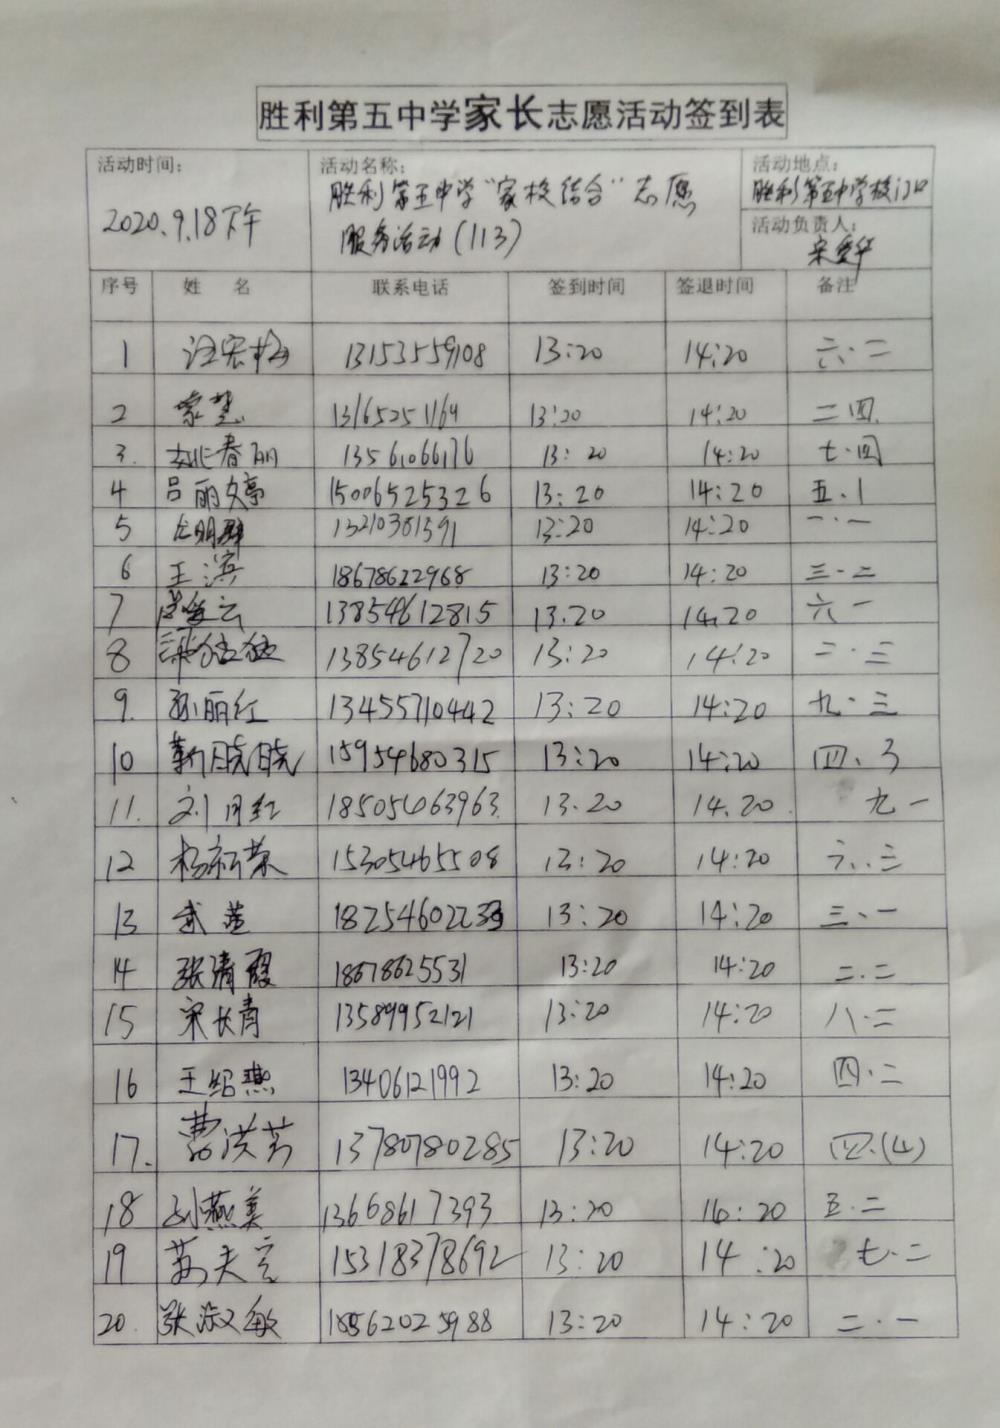 胜利第五中学家长志愿活动签到表
活动时间: 活动名称: 活动地点:
2020.9.18下午 胜利第五中学“家校结合”志愿 胜利第五中学校门口
服务活动(113) 活动负责人:
宋爱华
序号 姓 名 联系电话 签到时间 签退时间 备注
1 汪宏梅 13153559108 13:20 14:20 六·二
2 13165251164 13:20 14:20 二四
3. 姚春丽 13561066176 13:20 14:20 七·四
4 吕丽婷 15006525326 13:20 14:20 五.1
5 13210381591 13:20 14:20 一·一
6 王滨 18678622968 13:20 14:20 三·二
7 13854612815 13.20 14.20 六一
8 13854612720 13:20 14:20 二·三
9. 孙丽红 13455710442 13:20 14:20 九·三
10 靳晓晓 15954680315 13:20 14:20 四、3
11. 刘月红 18505463963 13.20 14.20 九一
12 杨新荣 15305465508 13:20 14:20 六.三
13 武莲 13:20 14:20 三、一
14 张清霞 18678625531 13:20 14:20 二.二
15 宋长青 13589952121 13:20 14:20 八·二
16 王绍燕 13406121992 13:20 14:20 四·二
17. 曹洪芳 13780780285 13:20 14:20 四.(4)
18 孙燕美 13668617393 13:20 16:20 五·二
19 15318378692 13:20 14:20 七·二
20. 张淑敏 18562025988 13:20 14:20 二·一